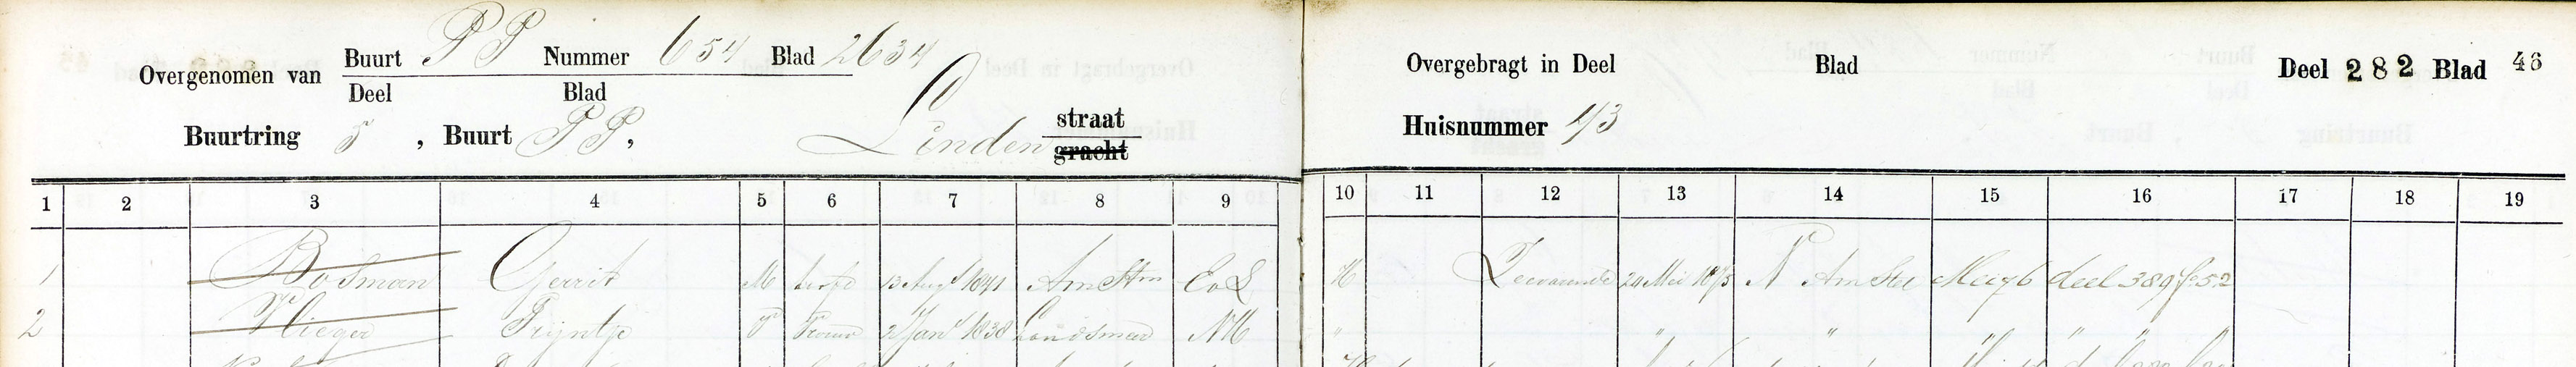 Overgenomen van Buurt PP Nummer 654 Blad 2634
Deel Blad
Buurtring 5, Buurt PP, Linden straat
gracht
Overgebragt in Deel Blad Deel 282 Blad 46
Huisnummer 43
1 2 3 4 5 6 7 8 9 10 11 12 13 14 15 16 17 18 19
1 Bosman Gerrit M hoofd 13 Aug 1841 AmStm EvL H 24 Mei 1875 N Meij 6 deel 389 fo 52
2 Vlieger Trijntje V Vrouw 2 Jan 1838 Landsmeer NH " " " " " " "